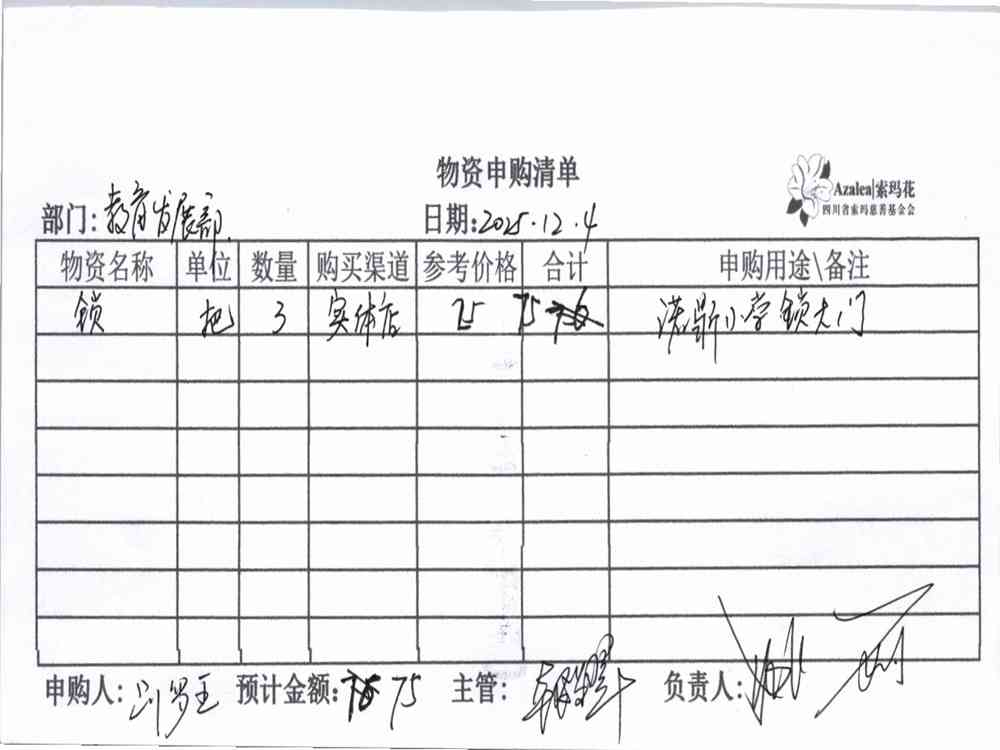 物资申购清单
Azalea|索玛花
四川省索玛慈善基金会
部门:教育发展部 日期:2025.12.4
物资名称 单位 数量 购买渠道 参考价格 合计 申购用途\备注
锁 把 3 实体店 25 75 小学锁大门
申购人:刘罗王 预计金额: 75 主管: 负责人: